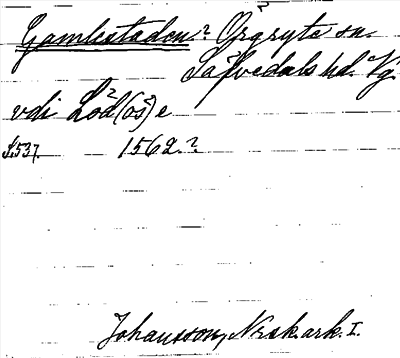 Gamlestaden? Örgryte sn.
Säfvedals hd. Vg.
vdi Löd(ös)e
S.537. 1562.?
Johansson, Nsk.ark. I.